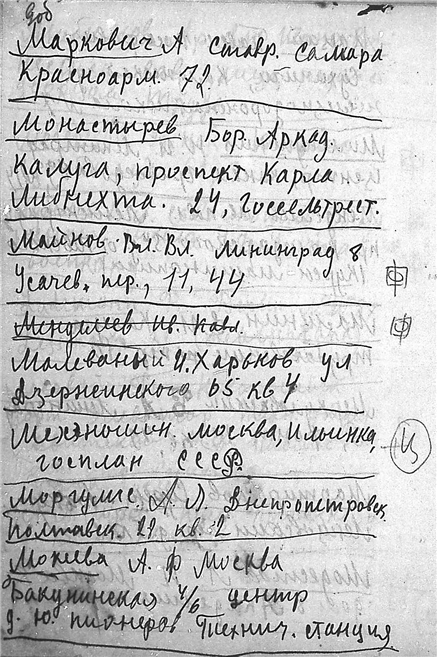 доб
Маркович А ставр. самара
Красноарм. 72.
Монастырев Бор. Аркад.
Калуга, проспект Карла
Либкнехта. 24, Госсельтрест.
Майнов Вл. Вл. Лининград 8
Усачев. пер., 11, 44
Ф
Менделеев Ив. Павл.
Ф
Малеваный И. Харьков ул
Дзержинского 65 кв 4
Мехэношин. Москва, Ильинка,
Госплан СССР
Ц
Моргулис. А. Л. Днепропетровск
Полтавск 29 кв. 2
Мокеева А. Ф Москва
Бакунинская 4/6 центр
д. ю. пионеров Технич. станция